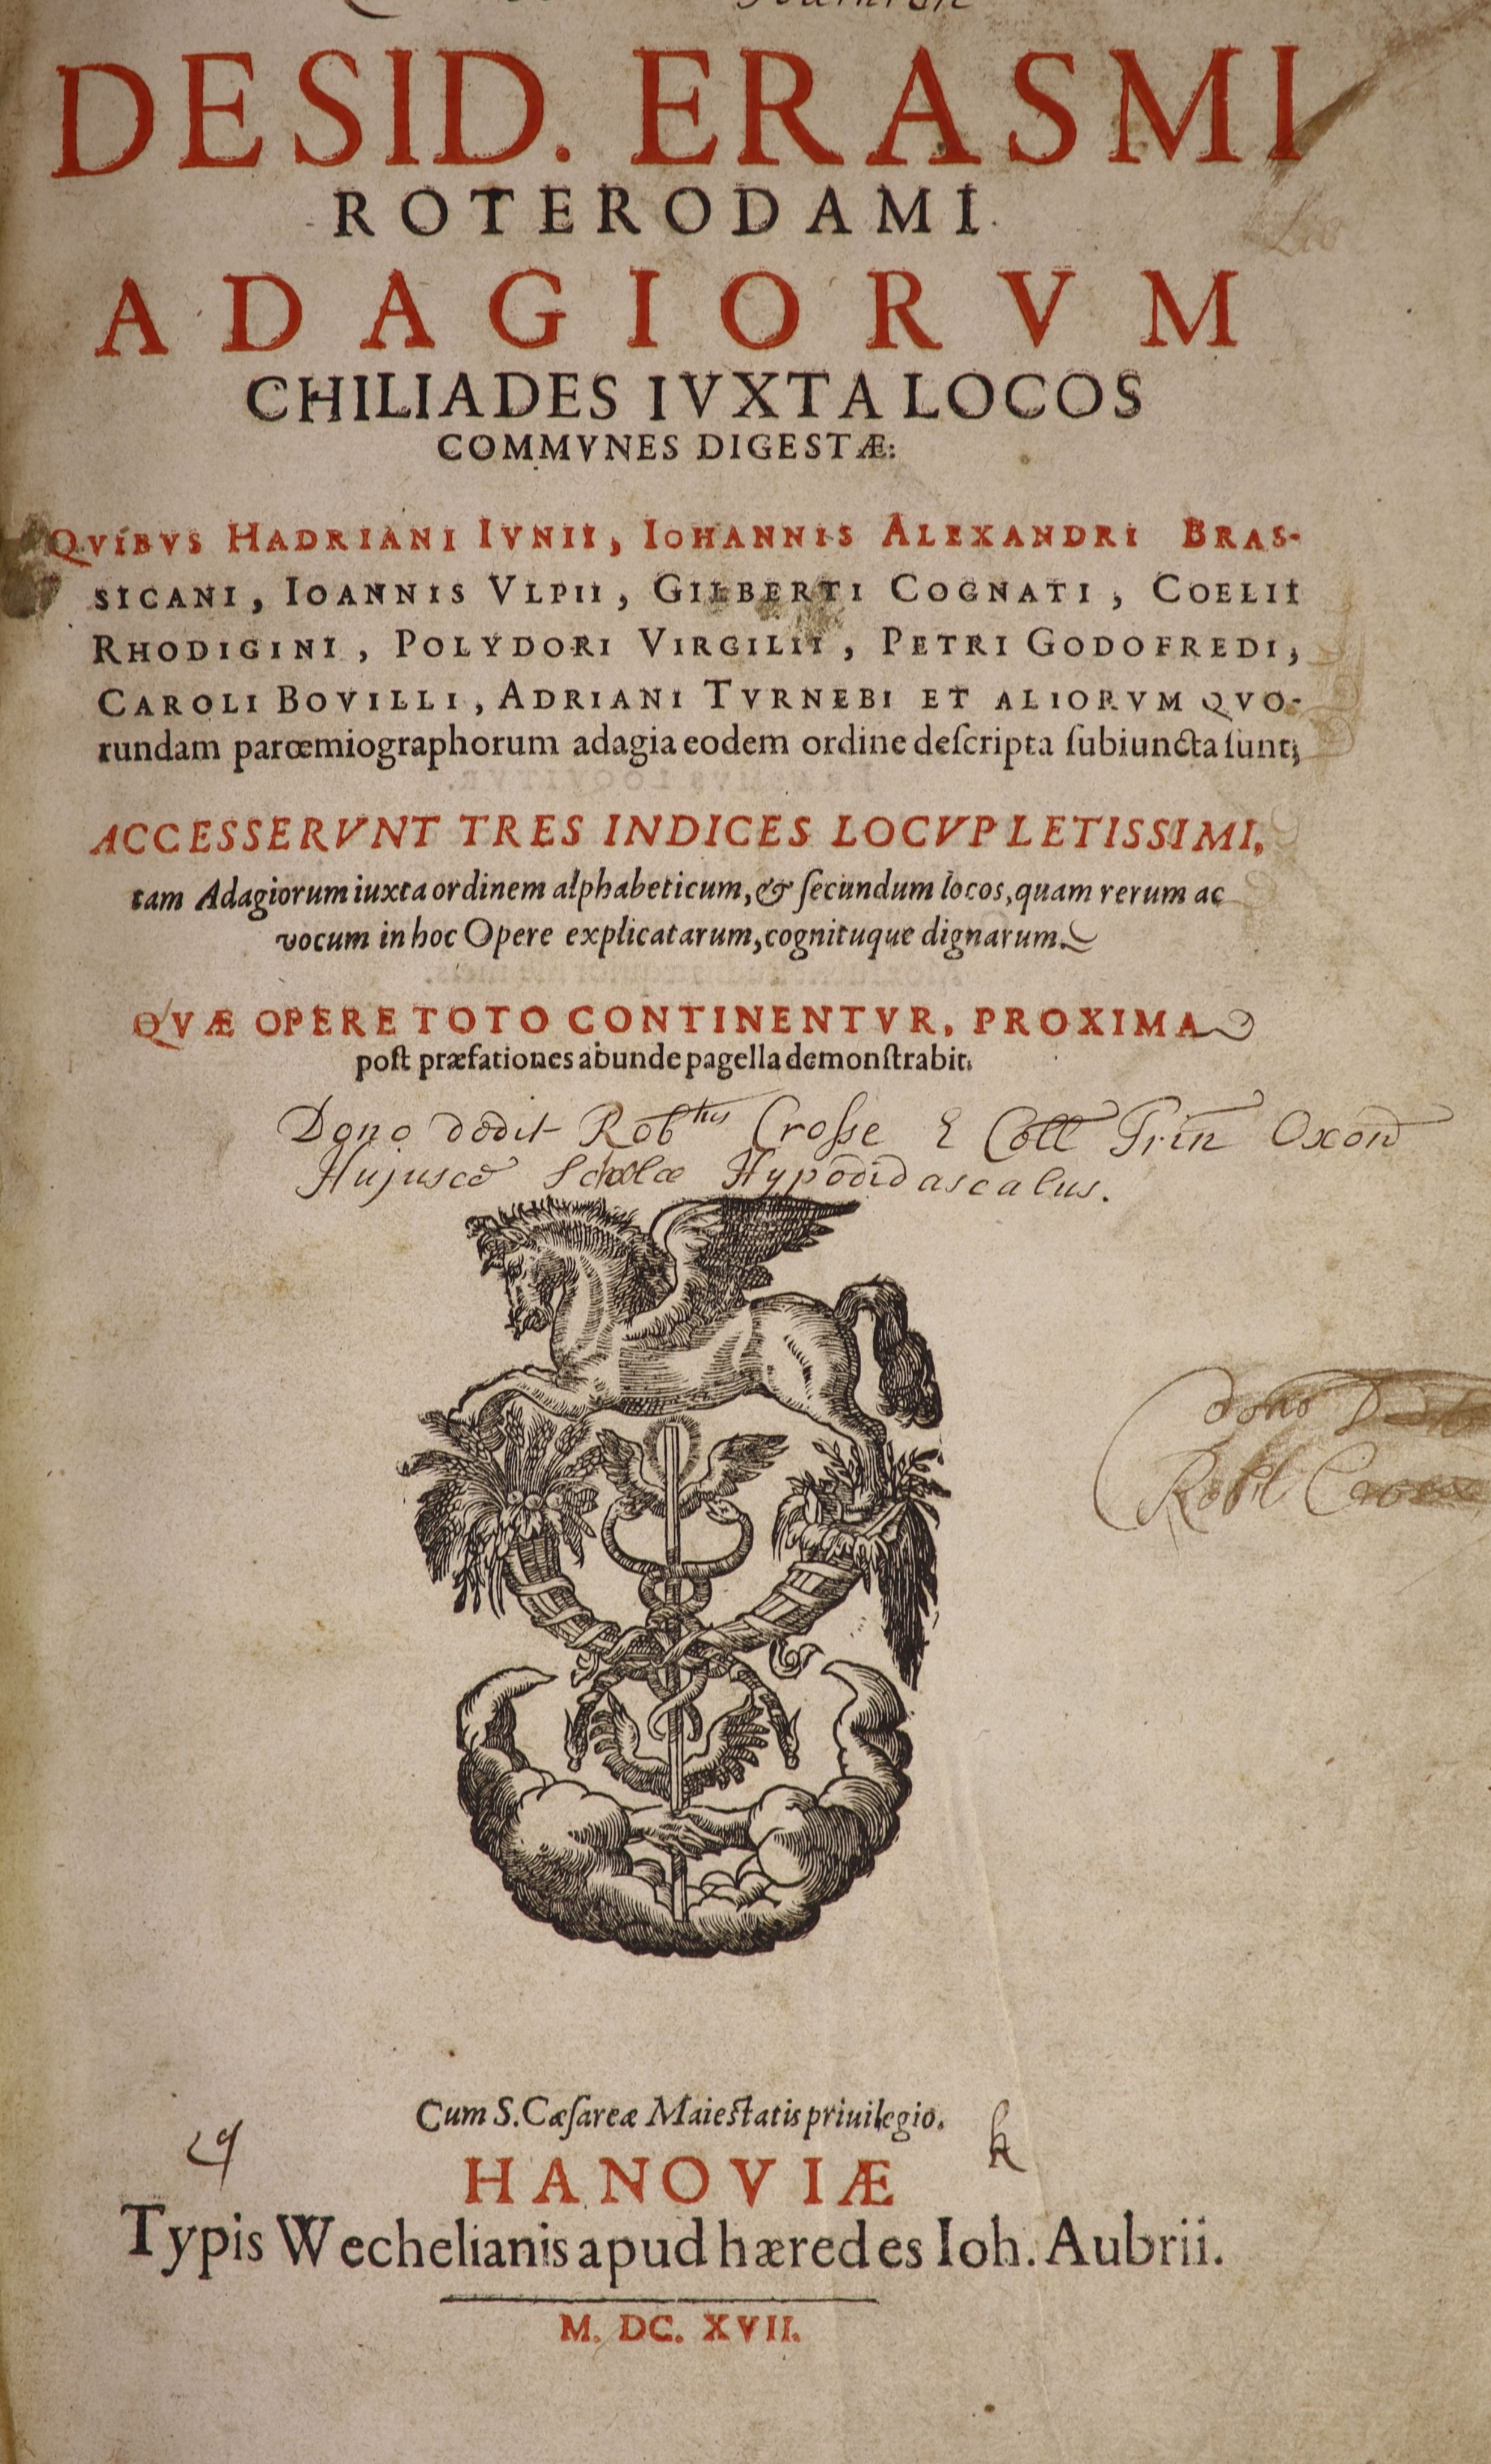 DESID. ERASMI
ROTERODAMI
ADAGIORVM
CHILIADES IVXTA LOCOS
COMMVNES DIGESTÆ:
QVIBVS HADRIANI IVNII, IOHANNIS ALEXANDRI BRAS-
SICANI, IOANNIS VLPII, GILBERTI COGNATI, COELII
RHODIGINI, POLYDORI VIRGILII, PETRI GODOFREDI,
CAROLI BOVILLI, ADRIANI TVRNEBI ET ALIORVM QVO-
rundam parœmiographorum adagia eodem ordine deſcripta ſubiuncta ſunt;
ACCESSERVNT TRES INDICES LOCVPLETISSIMI,
tam Adagiorum iuxta ordinem alphabeticum, & ſecundum locos, quam rerum ac
vocum in hoc Opere explicatarum, cognituque dignarum.
QVÆ OPERE TOTO CONTINENTVR, PROXIMA
poſt præfationes abunde pagella demonſtrabit.
Dono dedit Robtus Croſse E Coll Trin Oxon
Hujusce Scholæ Hypodidascalus.
dono
Robt
Cum S. Cæſareæ Maieſtatis priuilegio.
HANOVIÆ
Typis Wechelianis apud hæredes Ioh. Aubrii.
M. DC. XVII.